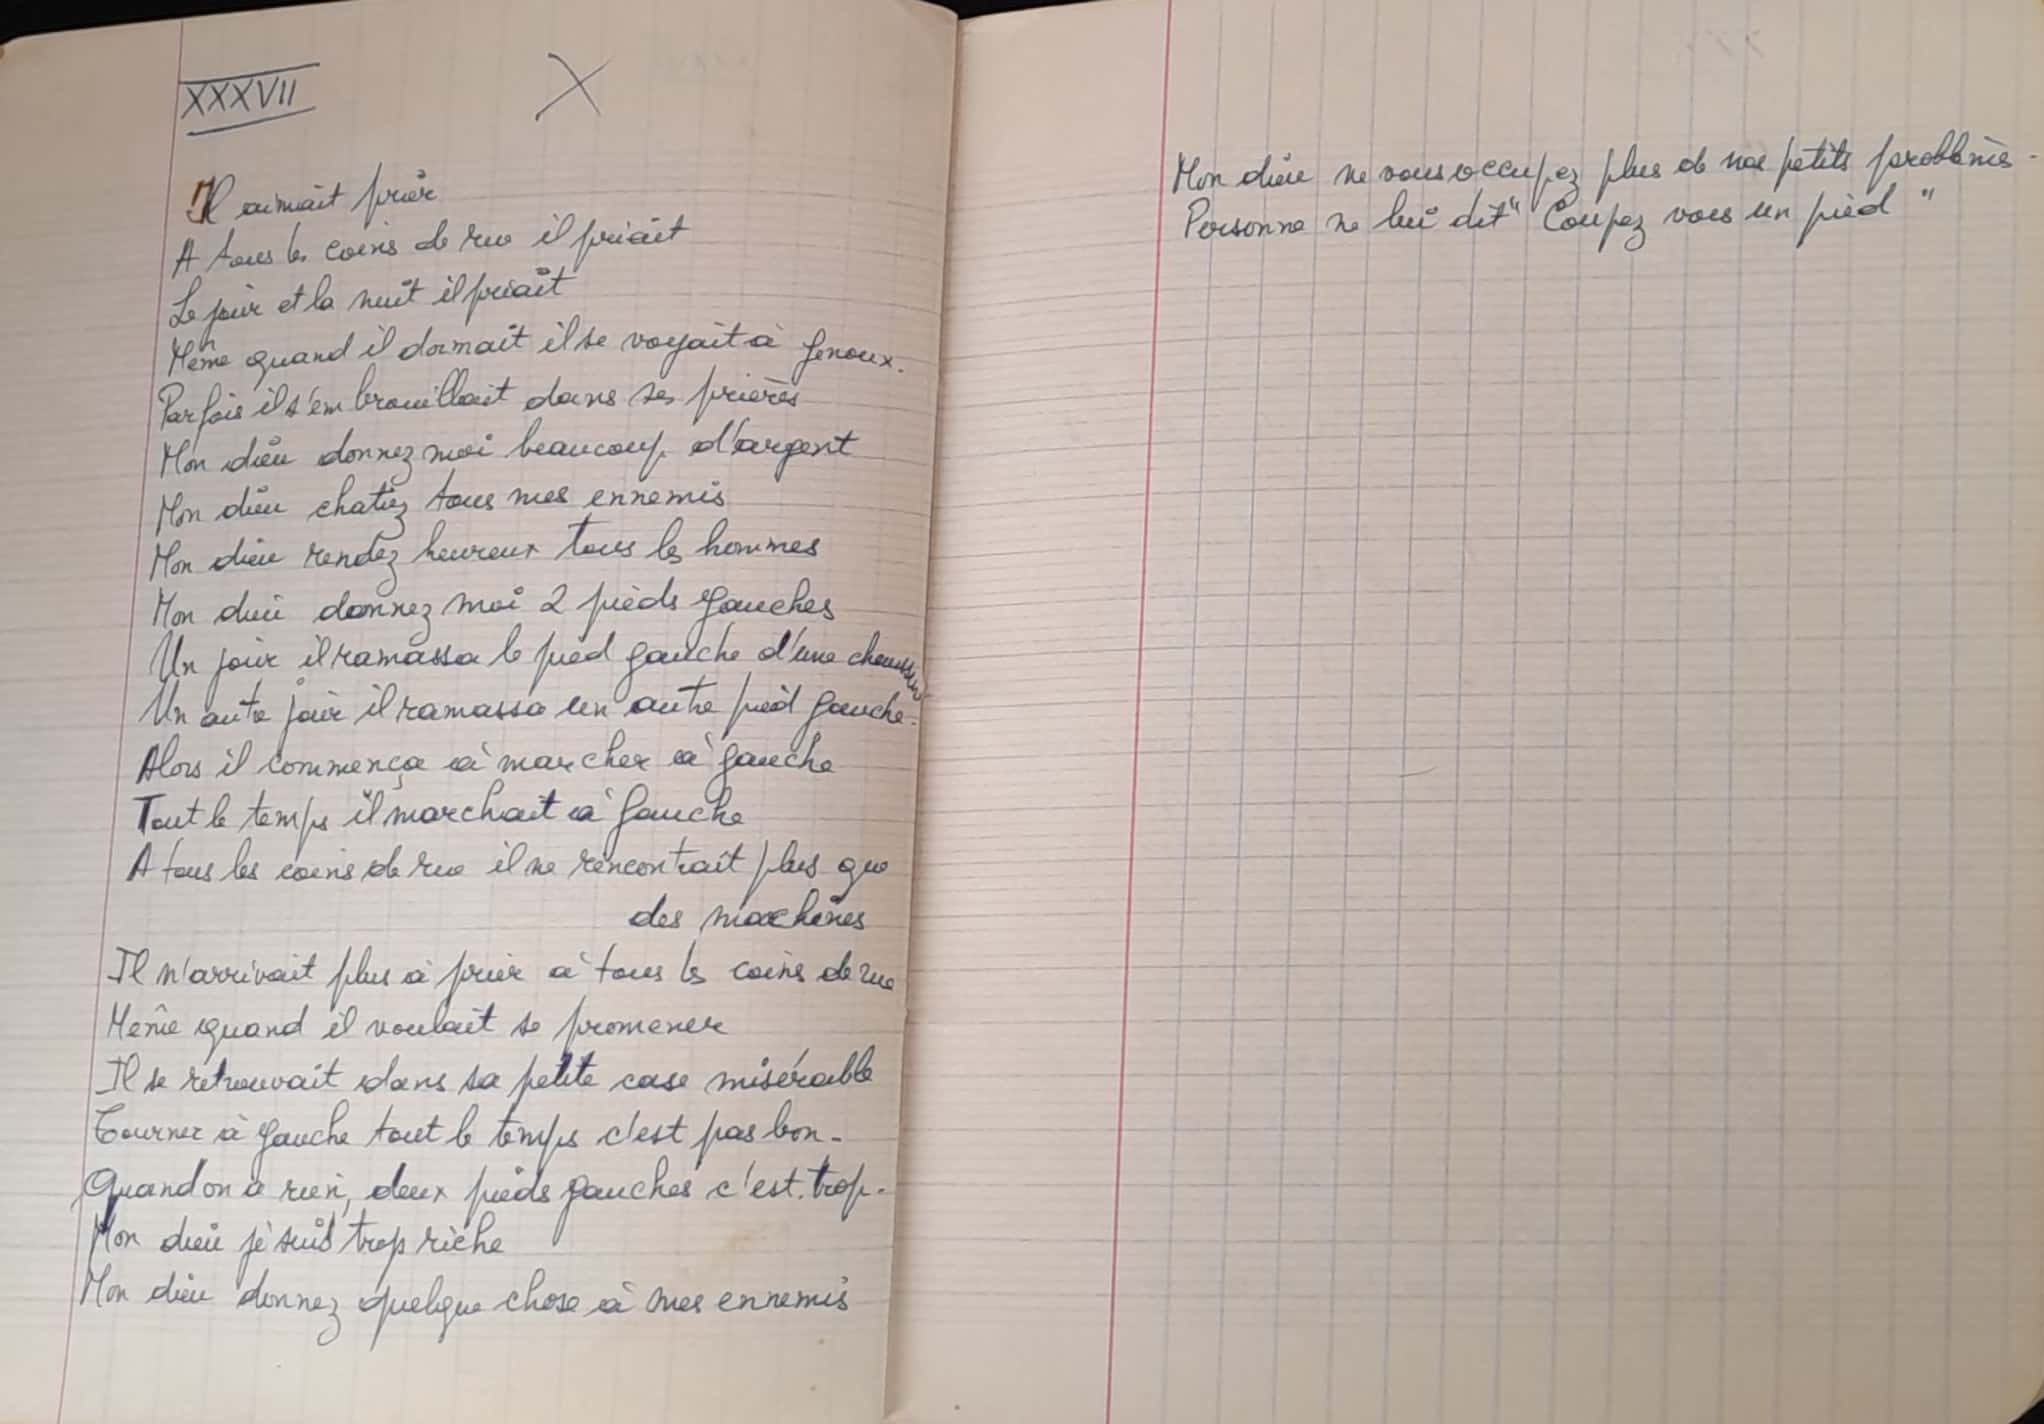 XXXVII X
Il aimait prier
A tous les coins de rue il priait
Le jour et la nuit il priait
Même quand il dormait il se voyait à genoux.
Parfois il s'embrouillait dans ses prières
Mon dieu donnez moi beaucoup d'argent
Mon dieu chatiez tous mes ennemis
Mon dieu rendez heureux tous les hommes
Mon dieu donnez moi 2 pieds gauches
Un jour il ramassa le pied gauche d'une chaussure
Un autre jour il ramassa un autre pied gauche.
Alors il commença à marcher à gauche
Tout le temps il marchait à gauche
A tous les coins de rue il ne rencontrait plus que
des machines
Il n'arrivait plus à prier à tous les coins de rue
Même quand il voulait se promener
Il se retrouvait dans sa petite case misérable
Tourner à gauche tout le temps c'est pas bon.
Quand on a rien, deux pieds gauches c'est trop.
Mon dieu je suis trop riche
Mon dieu donnez quelque chose à mes ennemis
Mon dieu ne vous occupez plus de nos petits problèmes.
Personne ne lui dit "Coupez vous un pied"